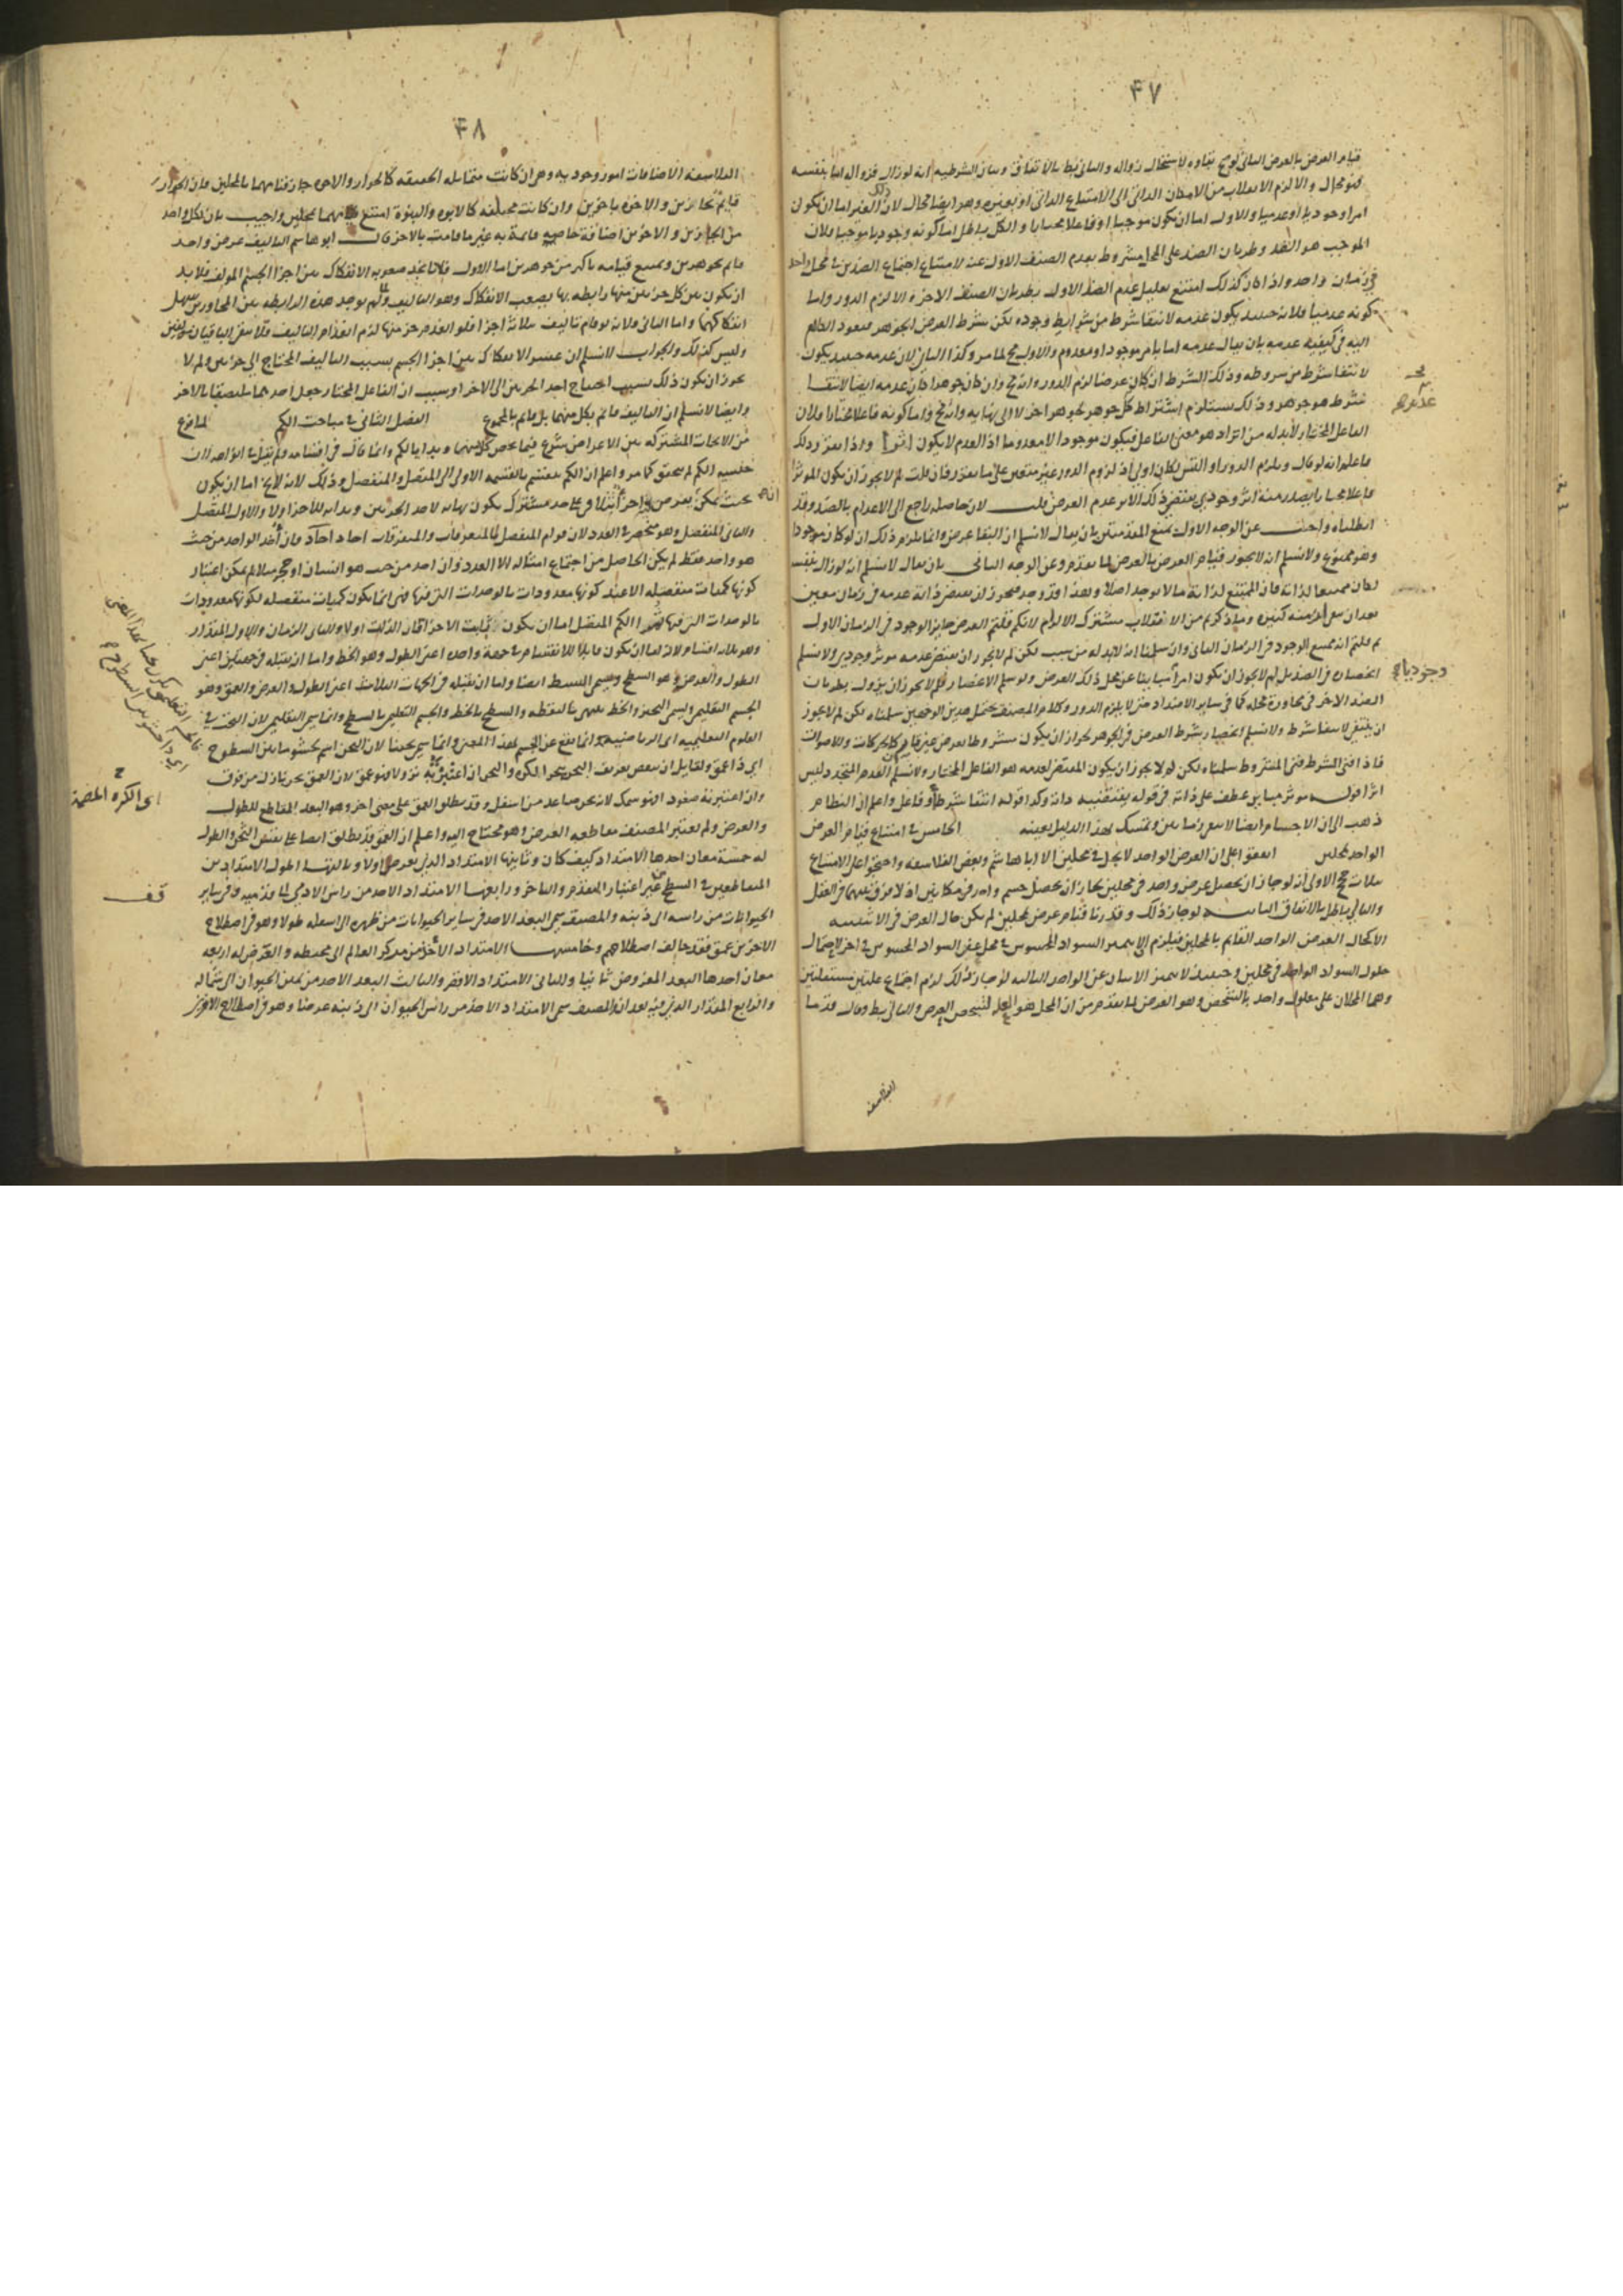 ۴۷
قيام العرض بالعرض الثانى لو صح بقاوه لاستحال زواله والثانى بط بالاتفاق وبيان الشرطيه انه لو زال فزواله اما بنفسه
فهو محال والا لزم الانقلاب من الامكان الذاتى الى الامتناع الذاتى او بغيره وهو ايضا محال لان ذلك الغير اما ان يكون
امرا وجوديا او عدميا والاول اما ان يكون موجبا او فاعلا مختارا والكل باطل اما كونه وجوديا موجبا فلان
الموجب هو الضد وطريان الضد على المحل مشروط بعدم الصنف الاول عنه لامتناع اجتماع الضدين فى محل واحد
فى زمان واحد واذا كان كذلك امتنع تعليل عدم الضد الاول بطريان الصنف الاخر والا لزم الدور واما
كونه عدميا فلانه حينئذ يكون عدمه لانتفا شرط من شرايط وجوده لكن شرط العرض الجوهر فيعود الكلام
اليه فى كيفية عدمه بان يقال عدمه اما بامر موجود او معدوم والاول مح لما مر وكذا الثانى لان عدمه حينئذ يكون
لانتفا شرط من شروطه وذلك الشرط ان كان عرضا لزم الدور وانه مح وان كان جوهرا كان عدمه ايضا لانتفا
شرط هو جوهر وذلك يستلزم اشتراط كل جوهر بجوهر اخر لا الى نهايه وانه مح واما كونه فاعلا مختارا فلان
الفاعل المختار لابد له من اثر اذ هو معنى الفاعل فيكون موجودا لا معدوما اذ العدم لا يكون اثرا واذا تقرر ذلك
فاعلم انه لو قال ويلزم الدور او التس لكان اولى اذ لزوم الدور غير متعين على ما تقرر فان قلت لم لا يجوز ان يكون الموثر
فاعلا مختارا يصدر منه اثر وجودى يقتضى ذلك الاثر عدم العرض قلت لان حاصله راجع الى الاعدام بالضد وقد
ابطلناه واجيب عن الوجه الاول بمنع المقدمتين بان يقال لا نسلم ان البقا عرض وانما يلزم ذلك ان لو كان موجودا
وهو ممنوع ولا نسلم انه لا يجوز قيام العرض بالعرض لما تقدم وعن الوجه الثانى بان يقال لا نسلم انه لو زال بنفسه
لكان ممتنعا لذاته فان الممتنع لذاته ما لا يوجد اصلا وهذا قد وجد فيجوز ان يقتضى ذاته عدمه فى زمان معين
بعد ان بقى ازمنه كثيره وما ذكرتم من الانقلاب مشترك الالزام لانكم قلتم العرض جايز الوجود فى الزمان الاول
ثم قلتم انه ممتنع الوجود فى الزمان الثانى وان سلمنا انه لابد له من سبب لكن لم لا يجوز ان يقتضى عدمه موثر وجودى ولا نسلم
انحصاره فى الضد بل لم لا يجوز ان يكون امرا مباينا عن محل ذلك العرض ولو سلم الانحصار فلم لا يجوز ان يزول بطريان
الضد الاخر فى مجاورة محله كما فى ساير الامتداد حتى لا يلزم الدور وكلام المصنف يحتمل هذين الوجهين سلمناه لكن لم لا يجوز
ان ينتفى لانتفا شرط ولا نسلم انحصار شرط العرض فى الجوهر لجواز ان يكون مشروطا بعرض غير قار كالحركات والاصوات
فاذا انتفى الشرط فنى المشروط سلمناه لكن لم لا يجوز ان يكون المقتضى لعدمه هو الفاعل المختار ولا نسلم ان العدم المتجدد ليس
اثرا قوله موثر مباين عطف على ذاته فى قوله يقتضيه ذاته وكذا قوله انتفا شرط او فاعل واعلم ان النظام
ذهب الى ان الاجسام ايضا لا تبقى زمانين وتمسك بهذا الدليل بعينه الخامس فى امتناع قيام العرض
الواحد بمحلين اتفقوا على ان العرض الواحد لا يحل فى محلين الا ابا هاشم وبعض الفلاسفه واحتجوا على الامتناع
بثلاث حجج الاولى انه لو جاز ان يحصل عرض واحد فى محلين لجاز ان يحصل جسم واحد فى مكانين اذ لا فرق بينهما فى العقل
والتالى باطل بالاتفاق الثانيه لو جاز ذلك وقدرنا قيام عرض بمحلين لم يكن حال العرض فى الاثنينيه
الا كحال العرض الواحد القايم بالمحلين فيلزم الا يتميز السواد المحسوس فى محل عن السواد المحسوس فى اخر لاحتمال
حلول السواد الواحد فى محلين وحينئذ لا يتميز الاثنان عن الواحد الثالثه لو جاز ذلك لزم اجتماع علتين مستقلتين
وهما المحلان على معلول واحد بالشخص وهو العرض لما تقدم من ان المحل هو العلة لتشخص العرض والتالى بط وقال قدما
الفلاسفه
وجوديا
۴۸
الفلاسفه الاضافات امور وجوديه وهى ان كانت متماثله الحقيقه كالجوار والاخوه جاز قيامهما بالمحلين فان الجوار
قايم بمتجاورين والاخوه باخوين وان كانت مختلفه كالابوه والبنوة امتنع قيامهما بمحلين واجيب بان لكل واحد
من الجارين والاخوين اضافة خاصه قائمة به غير ما قامت بالاخر قال ابو هاشم التاليف عرض واحد
قايم بجوهرين ويمتنع قيامه باكثر من جوهرين اما الاول فلانا نجد صعوبة الانفكاك بين اجزا الجسم المولف فلا بد
ان يكون بين كل جزئين منها رابطه بها يصعب الانفكاك وهو التاليف ولم يوجد هذه الرابطه بين المتجاورين فيسهل
انفكاكهما واما الثانى فلانه لو قام تاليف بثلاثة اجزا فلو انعدم جزء منها لزم انعدام التاليف فلا يبقى الباقيان مولفين
وليس كذلك والجواب لا نسلم ان عسر الانفكاك بين اجزا الجسم بسبب التاليف المحتاج الى جزئين ولم لا
يجوز ان يكون ذلك بسبب احتياج احد الجزئين الى الاخر او بسبب ان الفاعل المختار جعل احدهما ملتصقا بالاخر
وايضا لا نسلم ان التاليف قائم بكل منهما بل قايم بالمجموع الفصل الثانى فى مباحث الكم لما فرغ
من الابحاث المشتركه بين الاعراض شرع فيما يخص كلا منهما وبدا بالكم وانما قال فى اقسامه ولم يقل فى انواعه لان
جنسيه الكم لم يتحقق كما مر واعلم ان الكم ينقسم بالقسمه الاولى الى المتصل والمنفصل وذلك لانه لايخ اما ان يكون
بحيث يمكن ان يفرض فيه اجزا يتلاقى على حد مشترك يكون نهايه لاحد الجزئين وبدايه للاخر اولا والاول المتصل
والثانى المنفصل وهو منحصر فى العدد لان قوام المنفصل بالمتفرقات والمتفرقات احاد احاد فان اخذ الواحد من حيث
هو واحد فقط لم يكن الحاصل من اجتماع امثاله الا العدد وان اخذ من حيث هو انسان او حجر مثلا لم يمكن اعتبار
كونها كميات منفصله الا عند كونها معدودات بالوحدات التى فيها فهى انما يكون كميات منفصله لكونها معدودات
بالوحدات التى فيها ثم الكم المتصل اما ان يكون ثابت الاجزا قار الذات اولا والثانى الزمان والاول المقدار
وهو ثلاثه اقسام لانه اما ان يكون قابلا للانقسام فى جهة واحده اعنى الطول وهو الخط واما ان يقبله فى جهتين اعنى
الطول والعرض وهو السطح ويسمى البسيط ايضا واما ان يقبله فى الجهات الثلاث اعنى الطول والعرض والعمق وهو
الجسم التعليمى ويسمى الثخين والخط ينتهى بالنقطه والسطح بالخط والجسم التعليمى بالسطح وانما سمى التعليمى لان البحث فى
العلوم التعليميه اى الرياضيه انما يقع عن الجسم لهذا المعنى وانما سمى ثخينا لان الثخن اسم لحشو ما بين السطوح
وان اعتبر فيه صعود فهو سمك لانه ثخن صاعد من اسفل وقد يطلق العمق على معنى اخر وهو البعد المقاطع للطول
والعرض ولم يعتبر المصنف مقاطعه العرض وهو محتاج اليه واعلم ان العمق قد يطلق ايضا على نفس الثخن والطول
له خمسة معان احدها الامتداد كيف كان وثانيها الامتداد الذى يفرض اولا وثالثها اطول الامتدادين
المتقاطعين فى السطح من غير اعتبار المتقدم والتاخر ورابعها الامتداد الاخذ من راس الادمى الى قدميه وفى ساير
الحيوانات من راسه الى ذنبه والمصنف سمى البعد الاخذ فى ساير الحيوانات من ظهره الى اسفله طولا وهو فى اصطلاح
الاخرين عمق فقد خالف اصطلاحهم وخامسها الامتداد الاخذ من مركز العالم الى محيطه والعرض له اربعه
معان احدها البعد المفروض ثانيا والثانى الامتداد الاقصر والثالث البعد الاخذ من يمين الحيوان الى شماله
والرابع المقدار الذى فيه بعدان والمصنف سمى الامتداد الاخذ من راس الحيوان الى ذنبه عرضا وهو فى اصطلاح الاخرين
قف